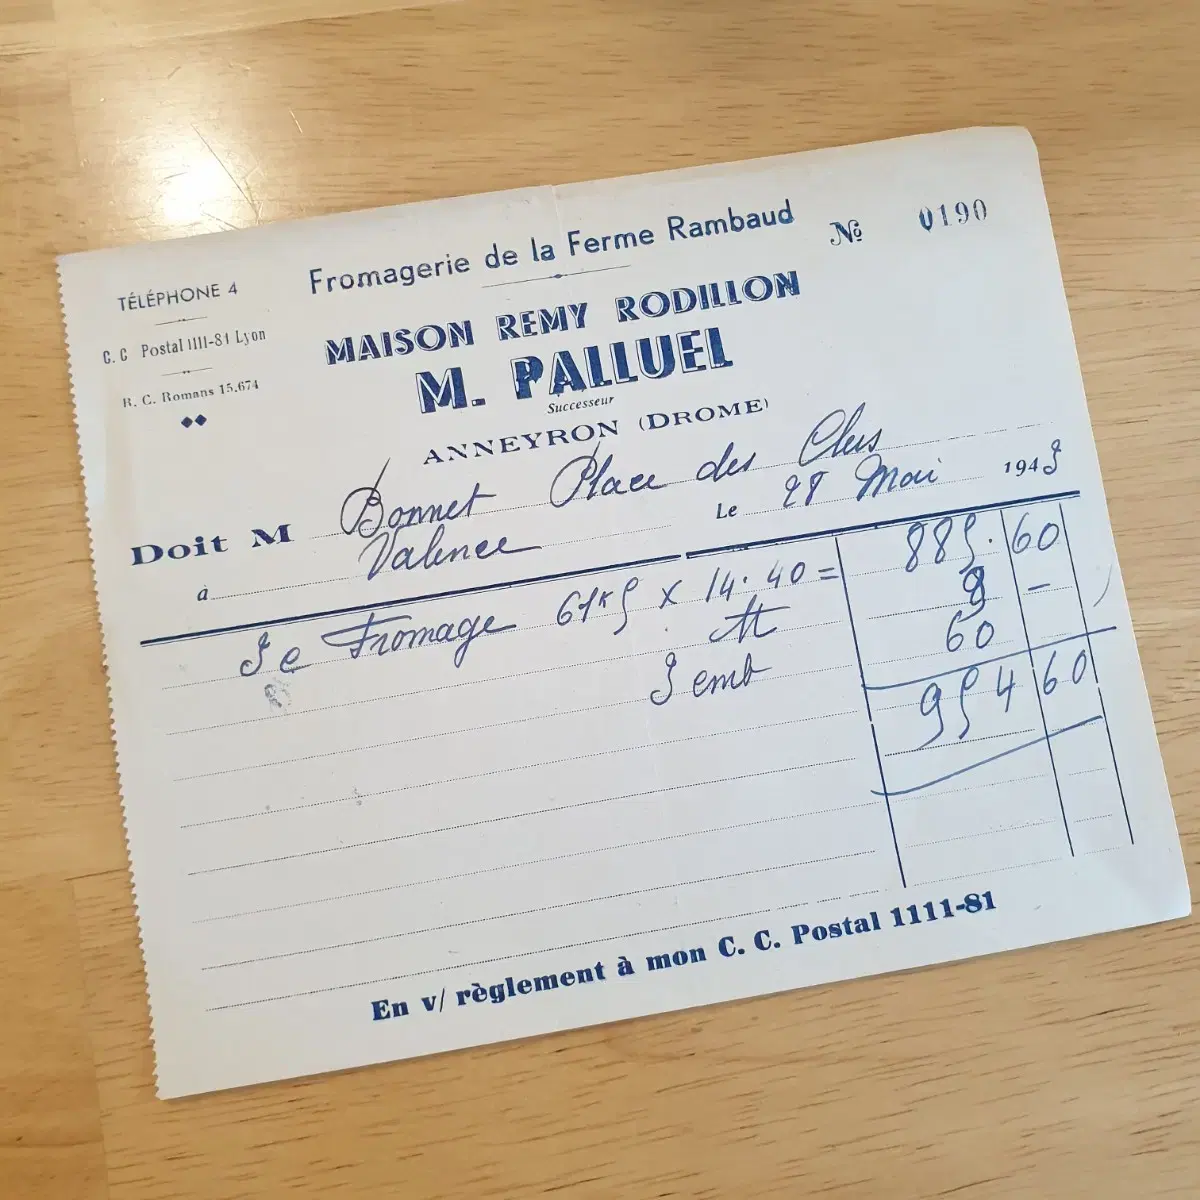 Fromagerie de la Ferme Rambaud
Nº 0190
TÉLÉPHONE 4
C. C Postal 1111-81 Lyon
R. C. Romans 15.674
MAISON REMY RODILLON
M. PALLUEL
Successeur
ANNEYRON (DROME)
Doit M Bonnet Place des Clers
à Valence
Le 28 Mai 1943
3 c Fromage 61k5 x 14.40 = 885.60
9 –
3 emb 60
954 60
En v/ règlement à mon C. C. Postal 1111-81